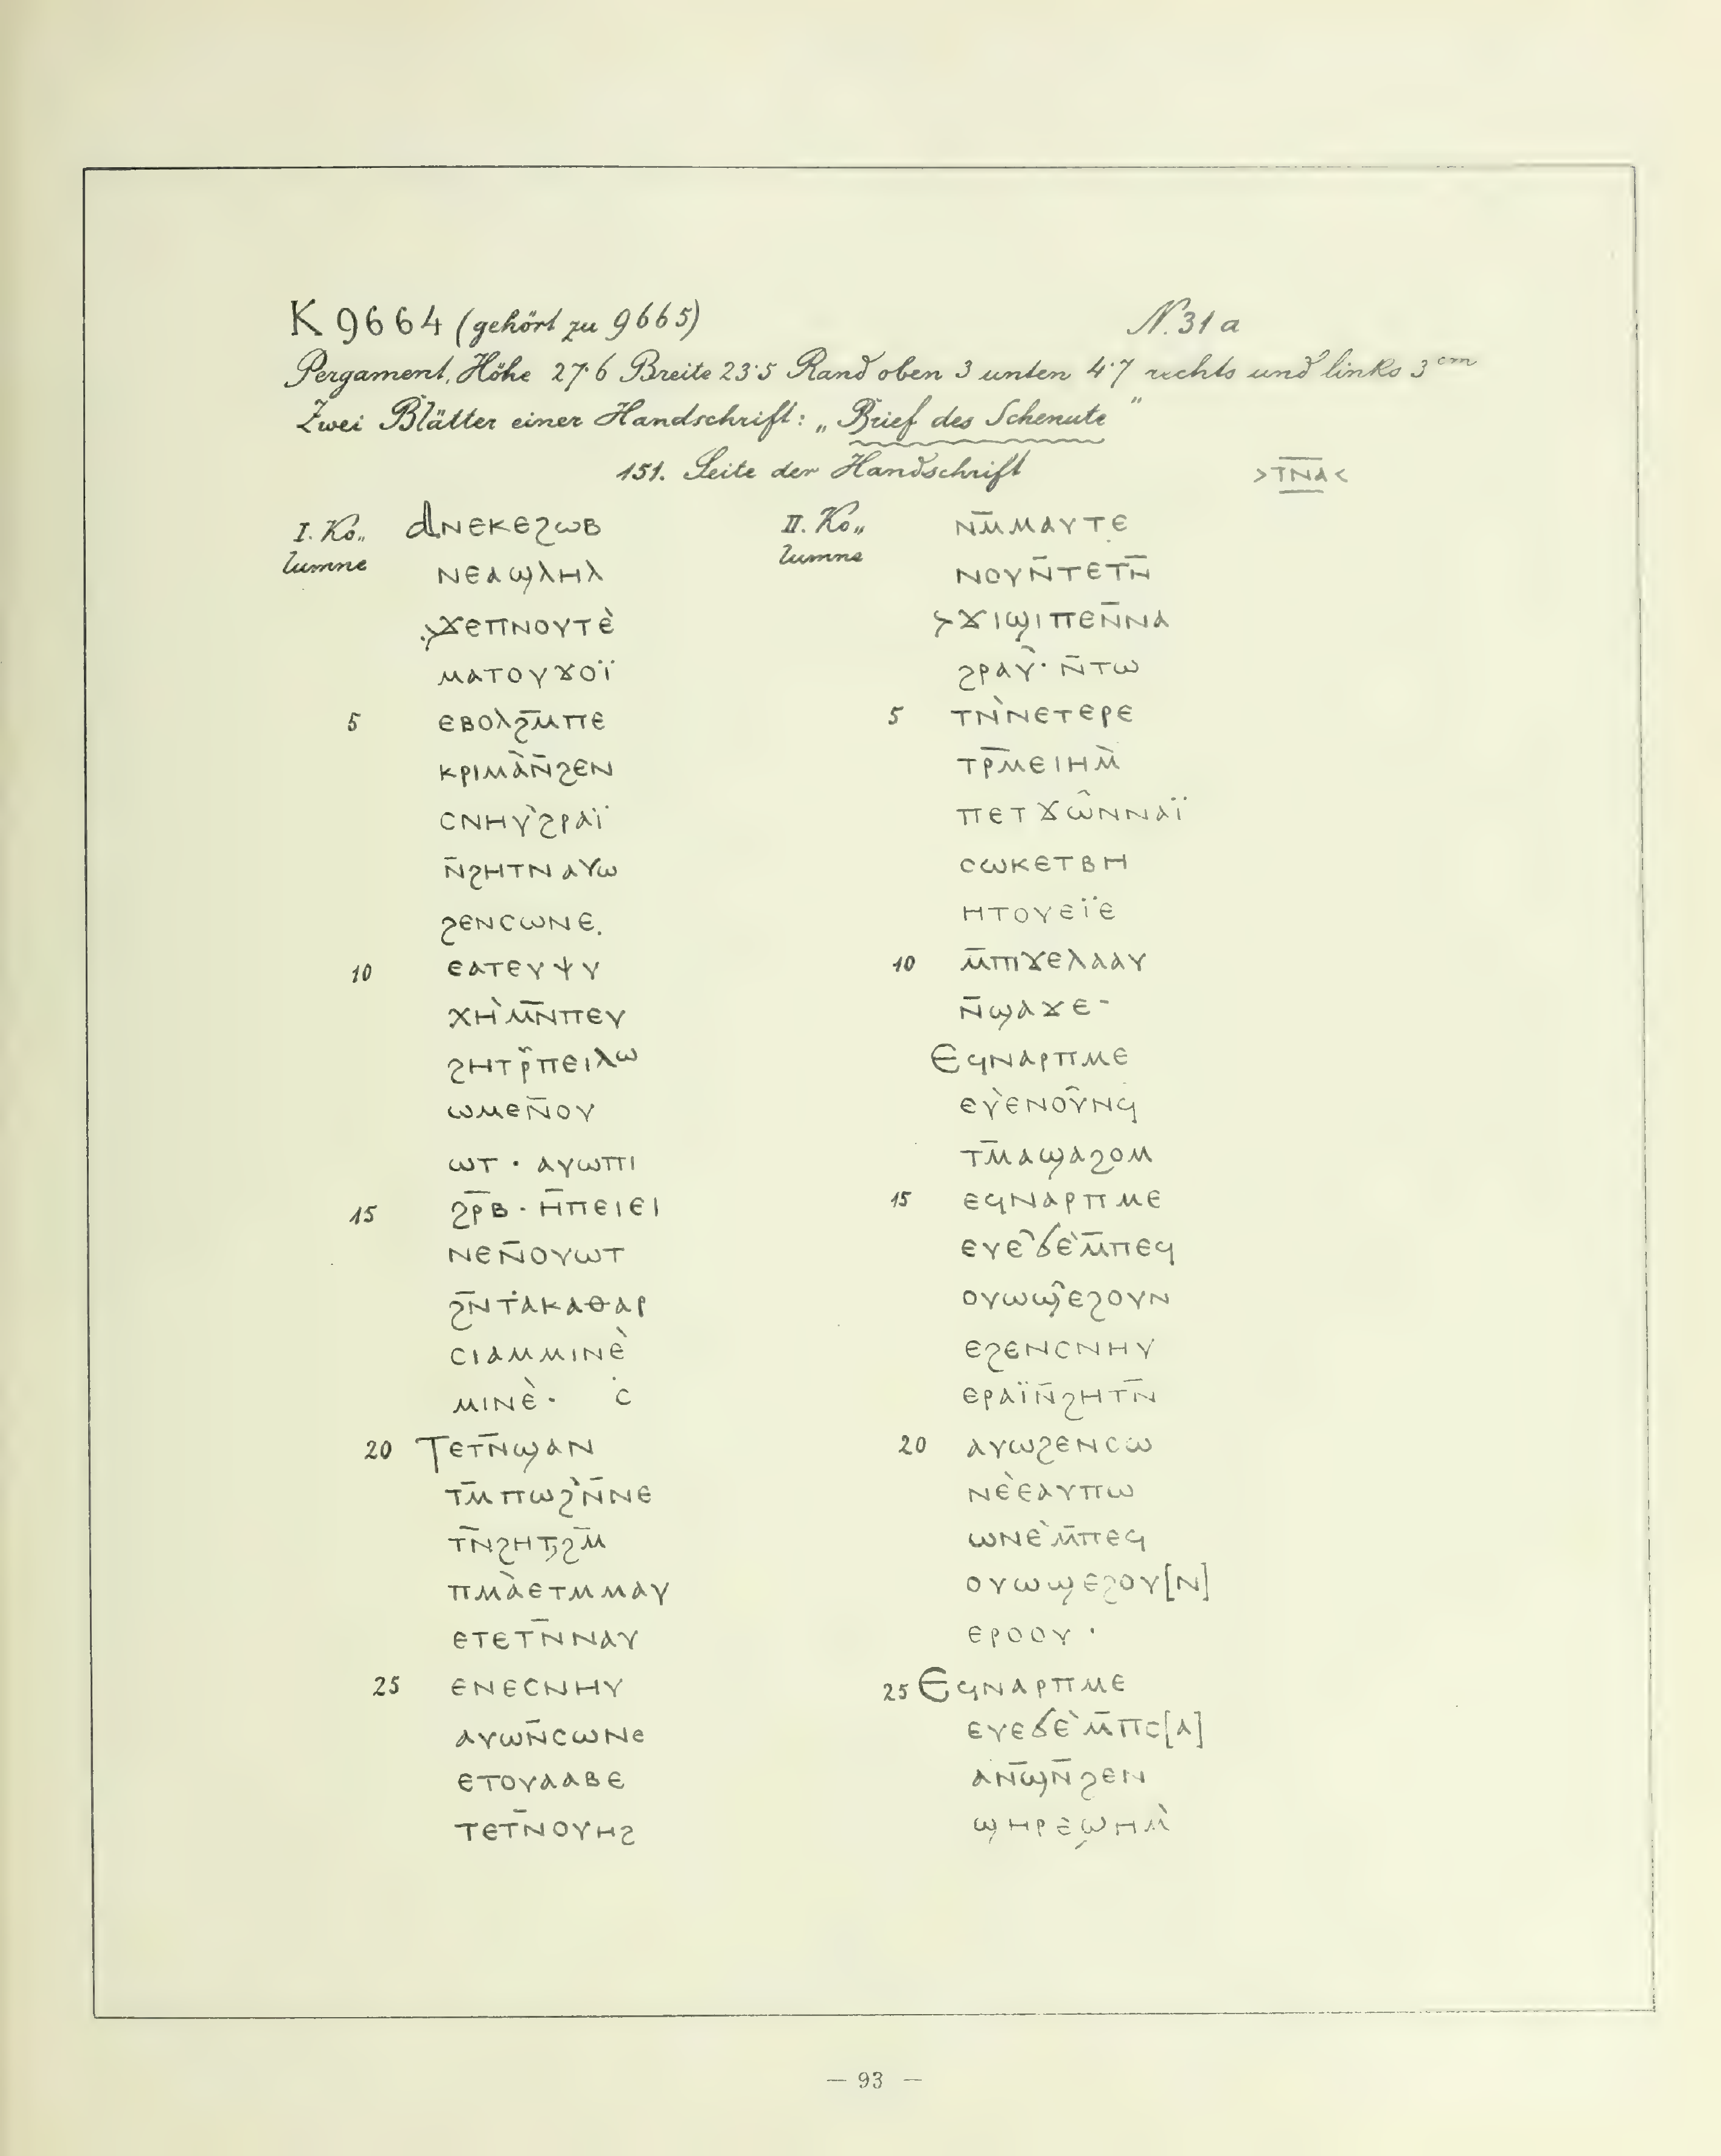 K 9664 (gehört zu 9665) N. 31 a
Pergament, Höhe 27·6 Breite 23·5 Rand oben 3 unten 4·7 rechts und links 3 cm
Zwei Blätter einer Handschrift: „Brief des Schenute"
151. Seite der Handschrift >ⲧ̅ⲛ̅ⲁ̅<
I. Ko„
lumne
ⲁⲛⲉⲕⲉϩⲱⲃ
ⲛⲉⲁϣⲗⲏⲗ
>ϫⲉⲡⲛⲟⲩⲧⲉ̀
ⲙⲁⲧⲟⲩϫⲟⲓ̈
5 ⲉⲃⲟⲗϩⲙ̅ⲡⲉ
ⲕⲣⲓⲙⲁ̀ⲛ̅ϩⲉⲛ
ⲥⲛⲏⲩ̀ϩⲣⲁⲓ̈
ⲛ̅ϩⲏⲧⲛⲁⲩⲱ
ϩⲉⲛⲥⲱⲛⲉ.
10 ⲉⲁⲧⲉⲩⲯⲩ
ⲭⲏ̀ⲙ̅ⲛ̅ⲡⲉⲩ
ϩⲏⲧⲣ̈ⲡⲉⲓⲗⲱ
ⲱⲙⲉⲛ̅ⲟⲩ
ⲱⲧ · ⲁⲩⲱⲡⲓ
15 ϩⲣ̅ⲃ · ⲏ̅ⲡⲉⲓⲉⲓ
ⲛⲉⲛ̅ⲟⲩⲱⲧ
ϩⲛ̅ⲧⲁⲕⲁⲑⲁⲣ
ⲥⲓⲁⲙⲙⲓⲛⲉ̀
ⲙⲓⲛⲉ̀ · ⲥ̇
20 ⲧⲉⲧⲛ̅ϣⲁⲛ
ⲧⲙ̅ⲡⲱϩ̀ⲛ̅ⲛⲉ
ⲧⲛ̅ϩⲏⲧϩⲙ̅
ⲡⲙⲁ̀ⲉⲧⲙⲙⲁⲩ
ⲉⲧⲉⲧⲛ̅ⲛⲁⲩ
25 ⲉⲛⲉⲥⲛⲏⲩ
ⲁⲩⲱⲛ̅ⲥⲱⲛⲉ
ⲉⲧⲟⲩⲁⲁⲃⲉ
ⲧⲉⲧⲛ̅ⲟⲩⲏϩ
II. Ko„
lumne
ⲛⲙ̅ⲙⲁⲩⲧⲉ
ⲛⲟⲩⲛ̅ⲧⲉⲧⲛ̅
>ϫⲓϣⲓⲡⲉⲛ̅ⲛⲁ
ϩⲣⲁⲩ̂ · ⲛ̅ⲧⲱ
5 ⲧⲛ̀ⲛⲉⲧⲉⲣⲉ
ⲧⲣ̅ⲙⲉⲓⲏⲙ̀
ⲡⲉⲧϫⲱ̂ⲛⲛⲁⲓ̈
ⲥⲱⲕⲉⲧⲃⲏ
ⲏⲧⲟⲩⲉⲓ̈ⲉ
10 ⲙ̅ⲡⲓϫⲉⲗⲁⲁⲩ
ⲛ̅ϣⲁϫⲉ-
ⲉϥⲛⲁⲣⲡⲙⲉ
ⲉⲩ̀ⲉⲛⲟⲩ̂ⲛϥ
ⲧⲙ̅ⲁϣⲁϩⲟⲙ
15 ⲉϥⲛⲁⲣⲡⲙⲉ
ⲉⲩⲉ̂ϭⲉ̀ⲙ̅ⲡⲉϥ
ⲟⲩⲱϣ̂ⲉϩⲟⲩⲛ
ⲉϩⲉⲛⲥⲛⲏⲩ
ⲉⲣⲁⲓ̈ⲛ̅ϩⲏⲧⲛ̅
20 ⲁⲩⲱϩⲉⲛⲥⲱ
ⲛⲉ̀ⲉⲁⲩⲡⲱ
ⲱⲛⲉ̀ⲙ̅ⲡⲉϥ
ⲟⲩⲱϣⲉϩⲟⲩ[ⲛ]
ⲉⲣⲟⲟⲩ ·
25 ⲉϥⲛⲁⲣⲡⲙⲉ
ⲉⲩⲉϭⲉ̀ⲙ̅ⲡⲥ[ⲁ]
ⲁⲛ̅ϣⲛ̅ϩⲉⲛ
ϣⲏⲣⲉϣⲏⲙ̀
— 93 —